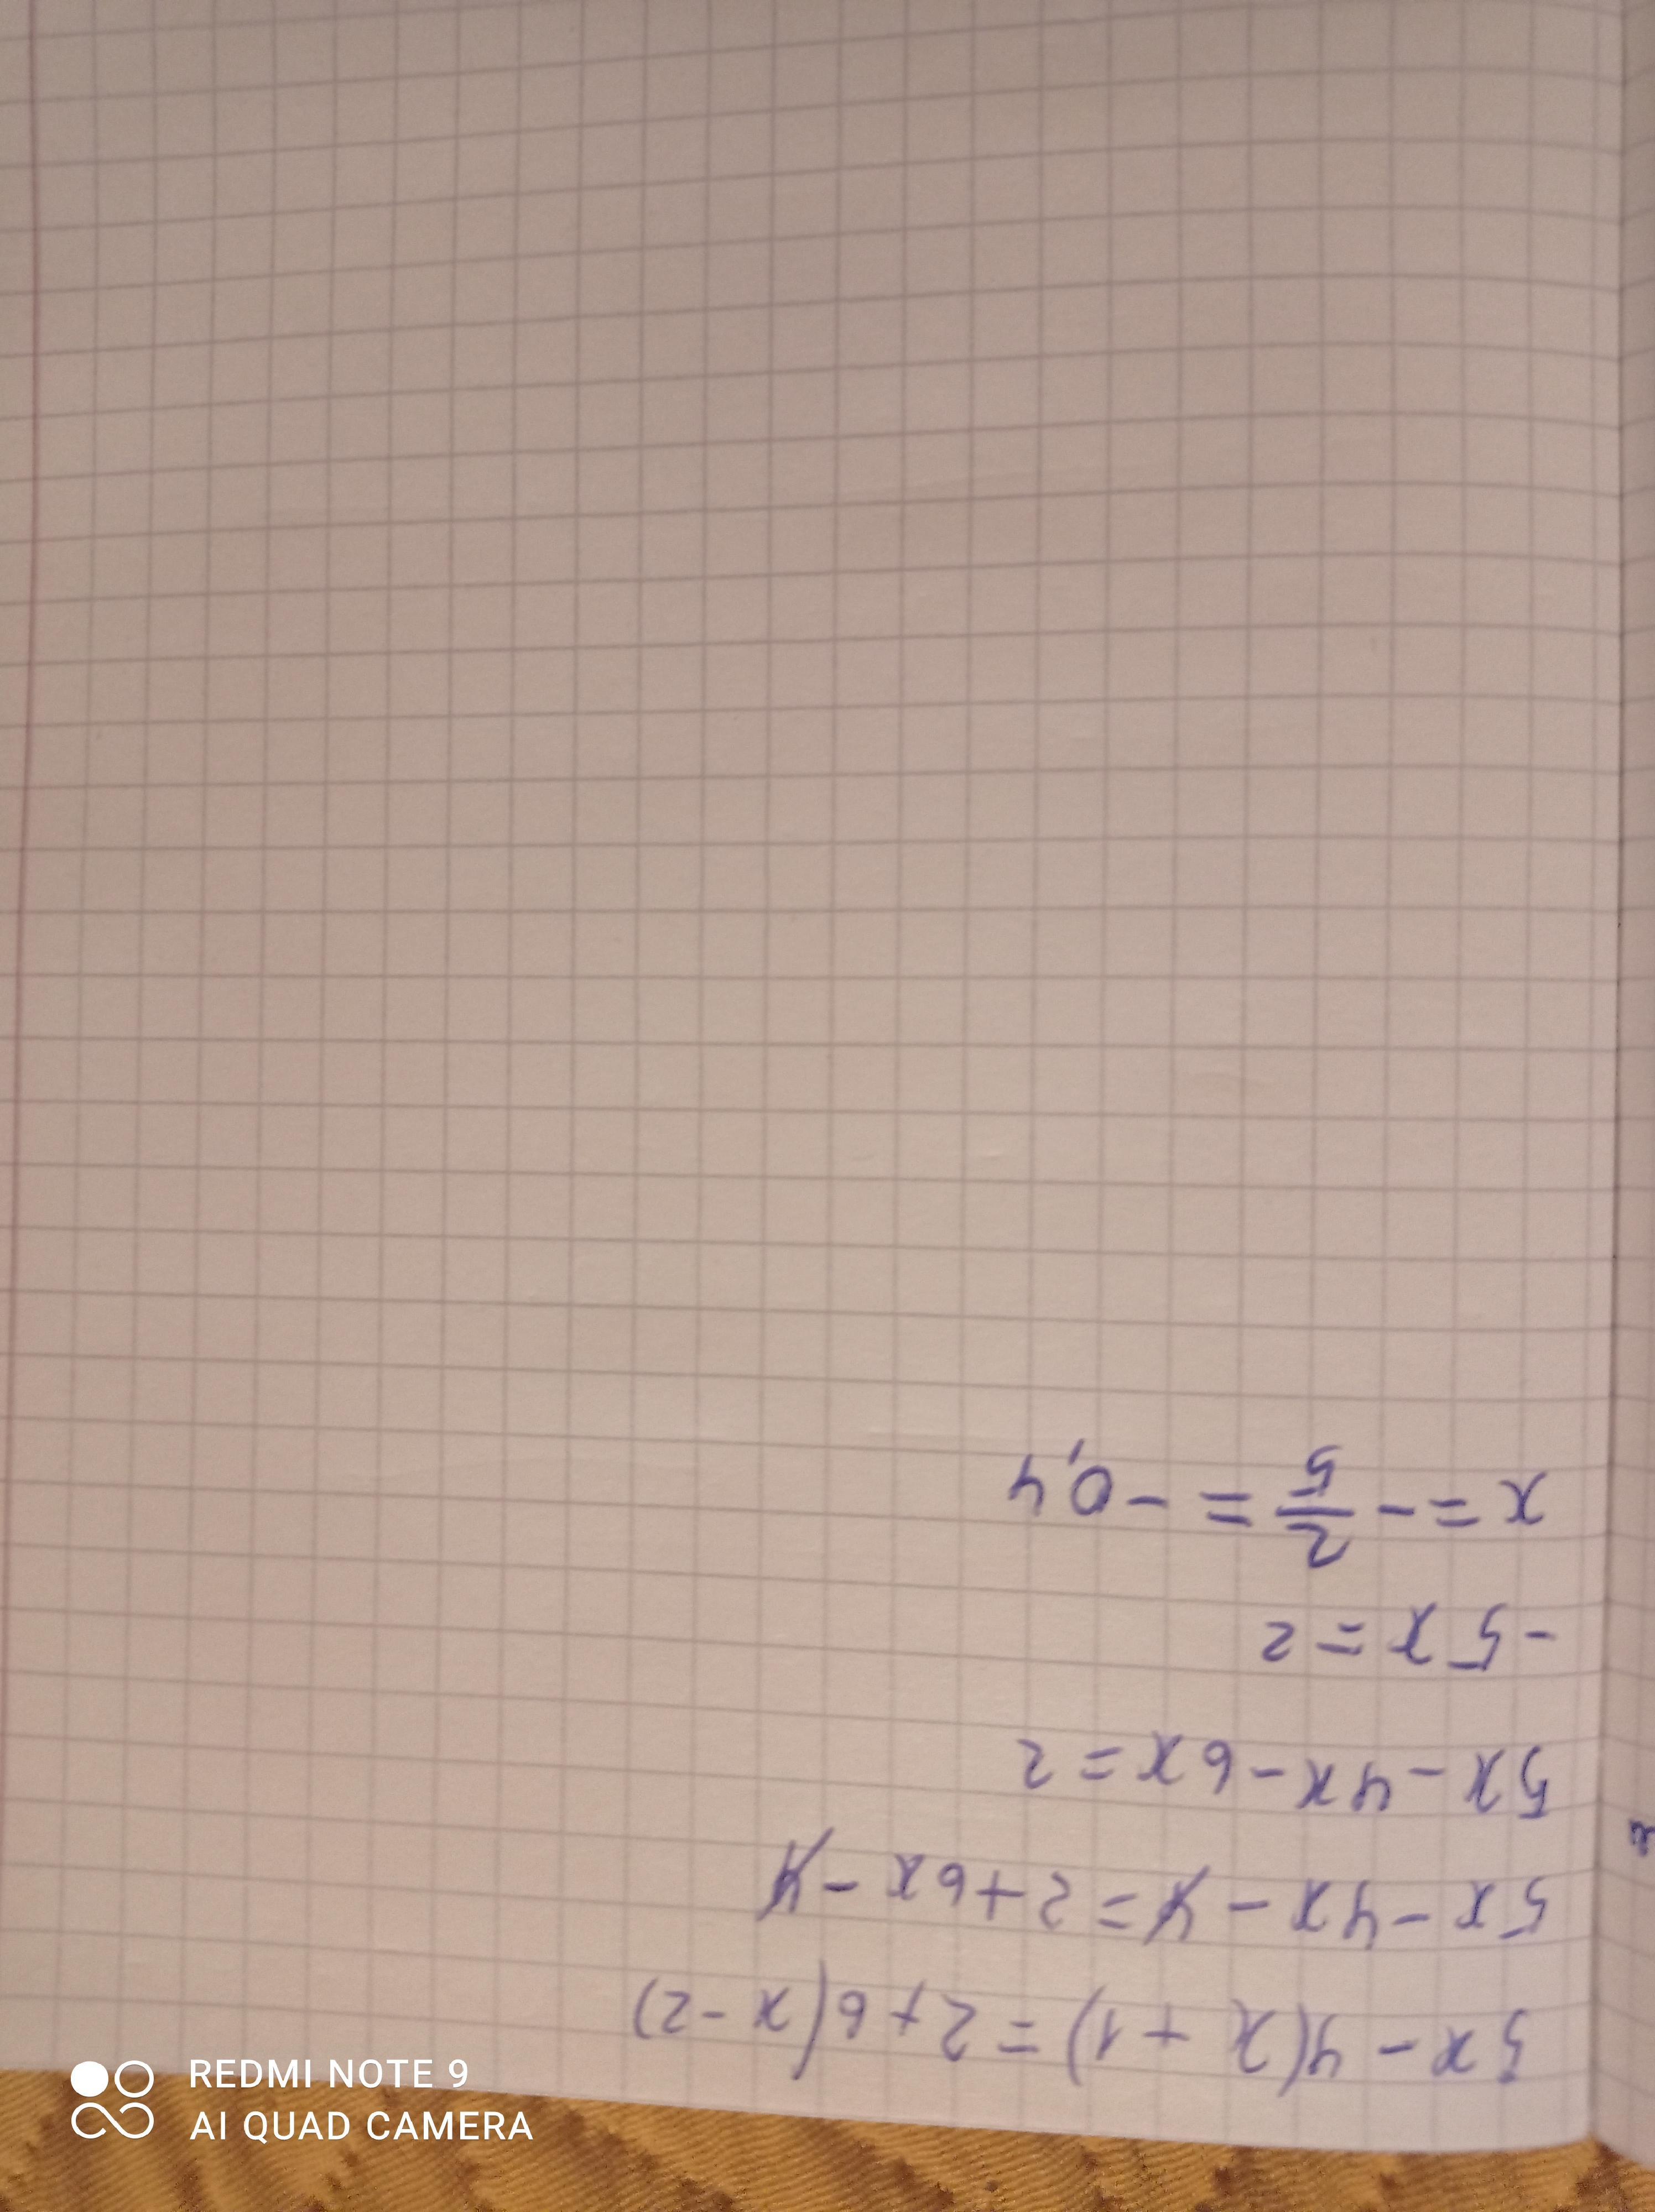 5x - 4(x + 1) = 2 + 6(x - 2)
5x - 4x - 4 = 2 + 6x - 4
5x - 4x - 6x = 2
- 5x = 2
x = - 2/5 = - 0,4
REDMI NOTE 9
AI QUAD CAMERA